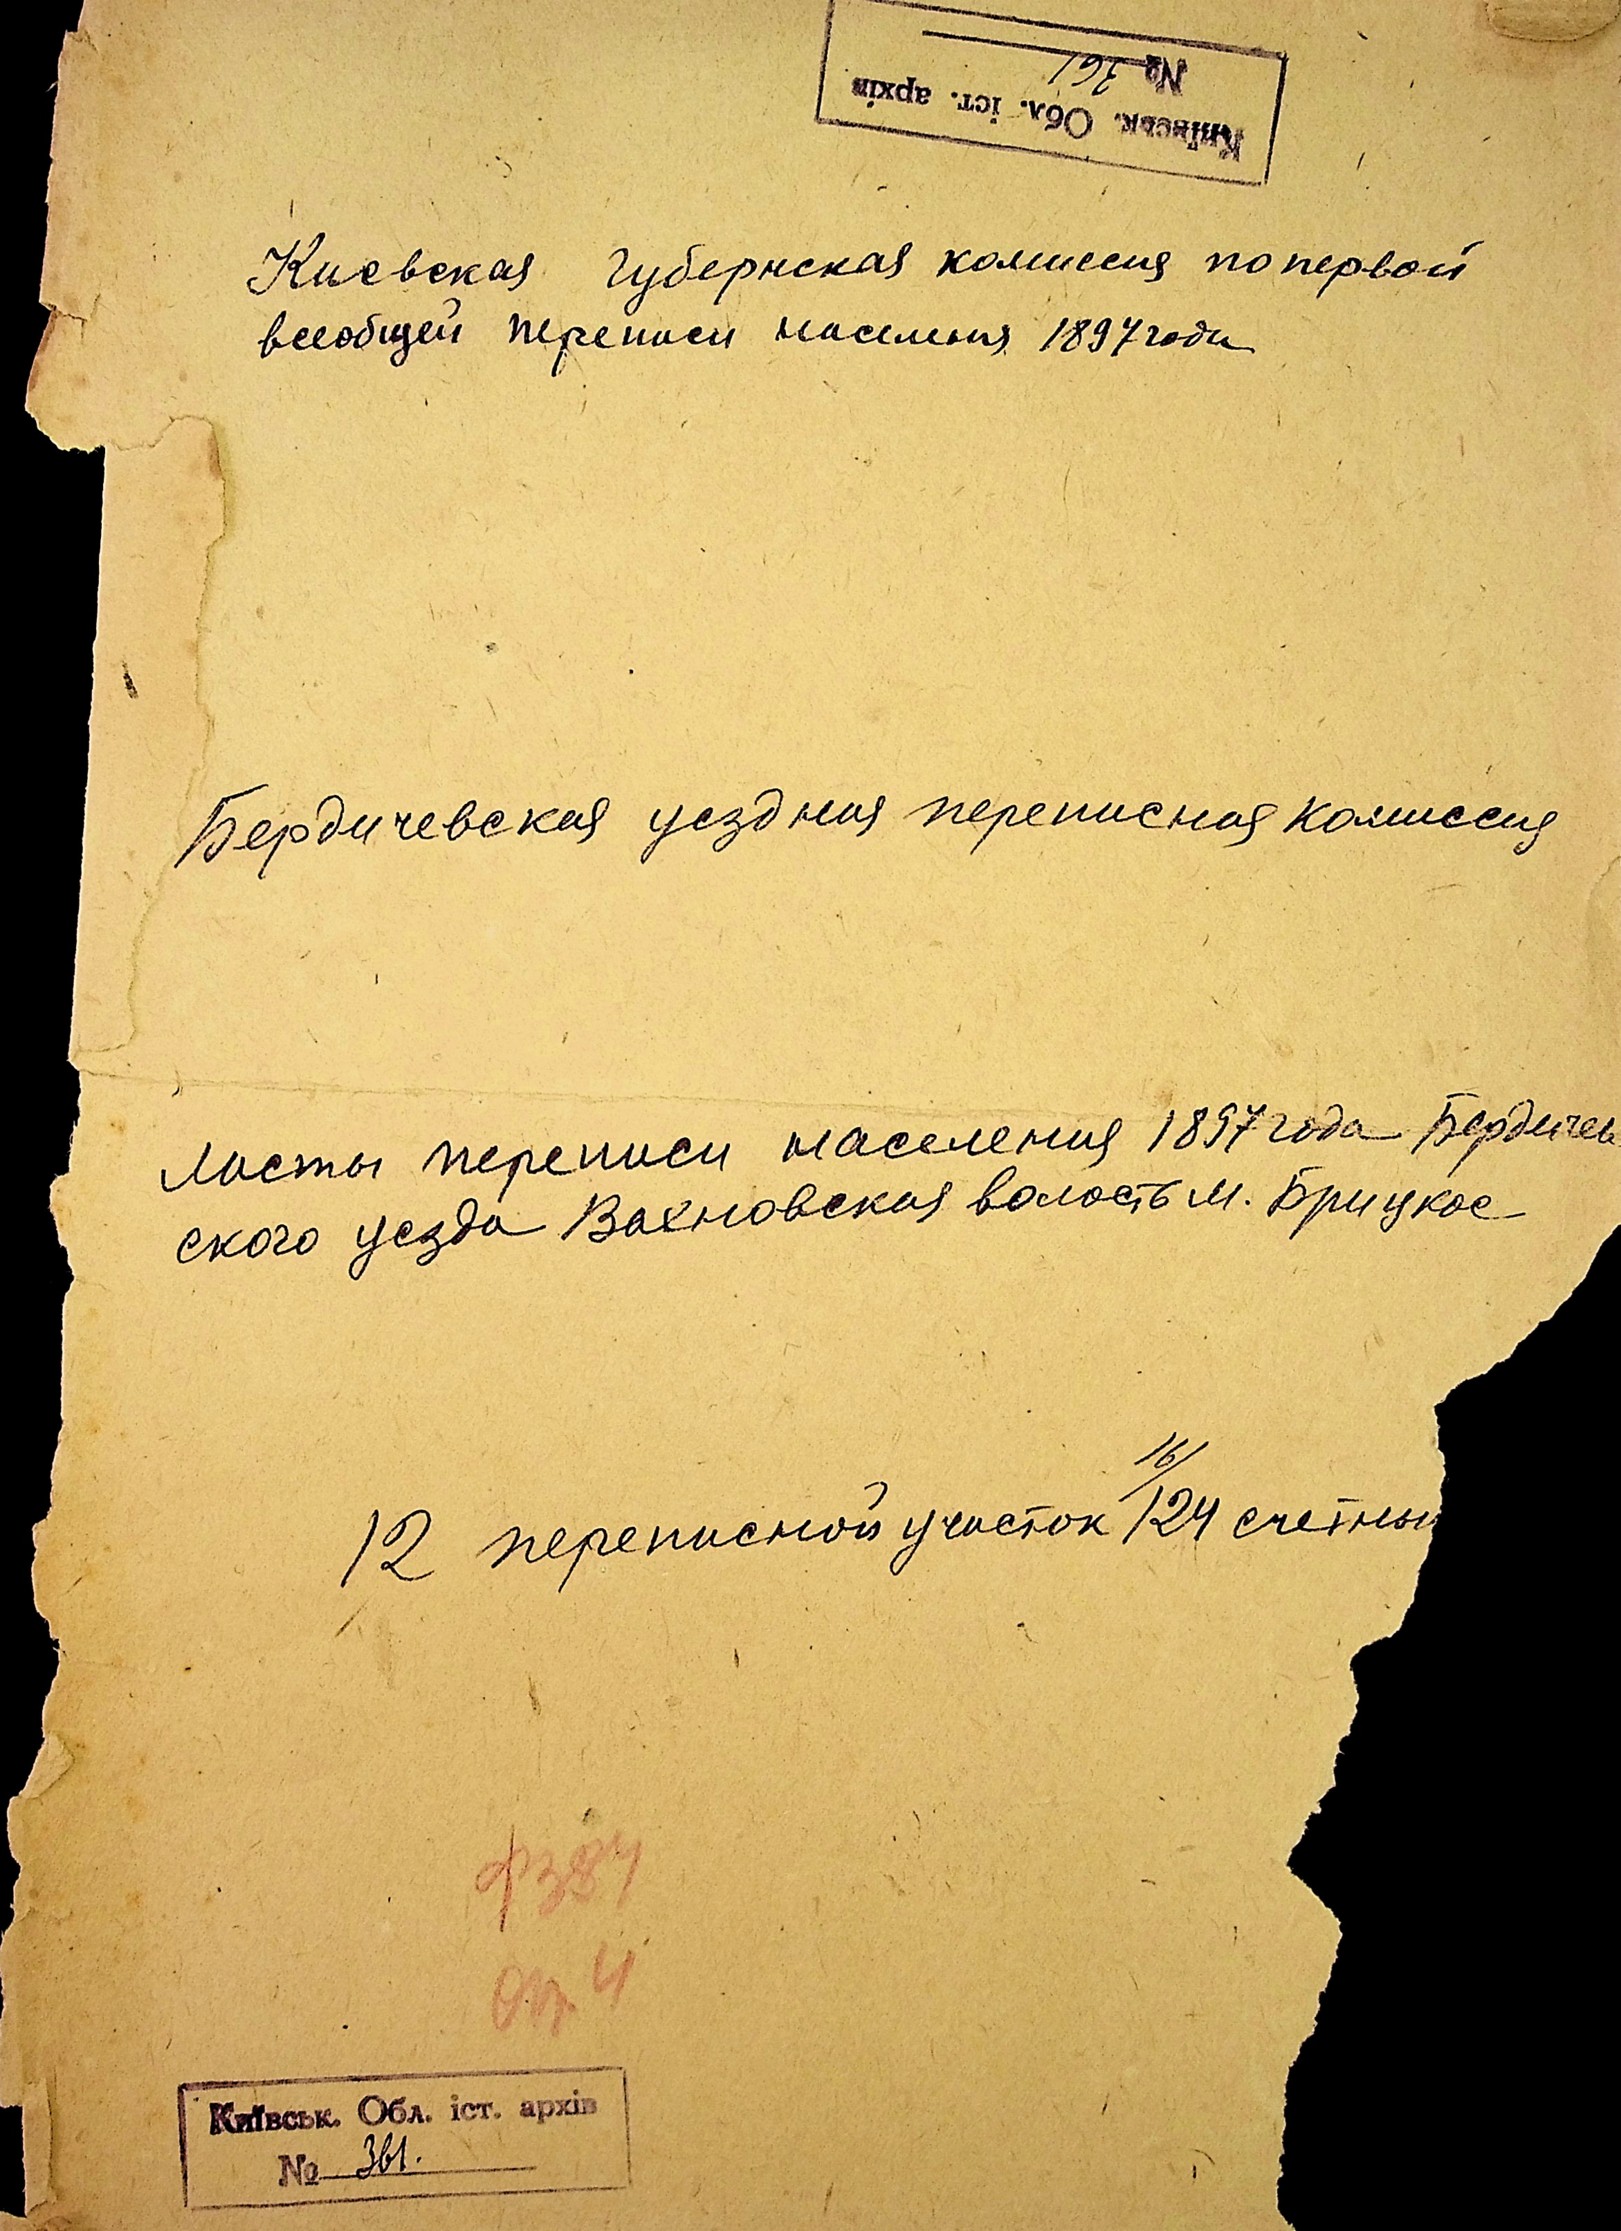 Київськ. Обл. іст. архів
№ 361
Киевская Губернская комиссия по первой
всеобщей переписи населения 1897 года
Бердичевская уездная переписная комиссия
Листы переписи населения 1897 года Бердичев
ского уезда Вахновская волость м. Брицкое
16/
12 переписной участок 124 счетный
Ф384
Оп. 4
Київськ. Обл. іст. архів
№ 361.